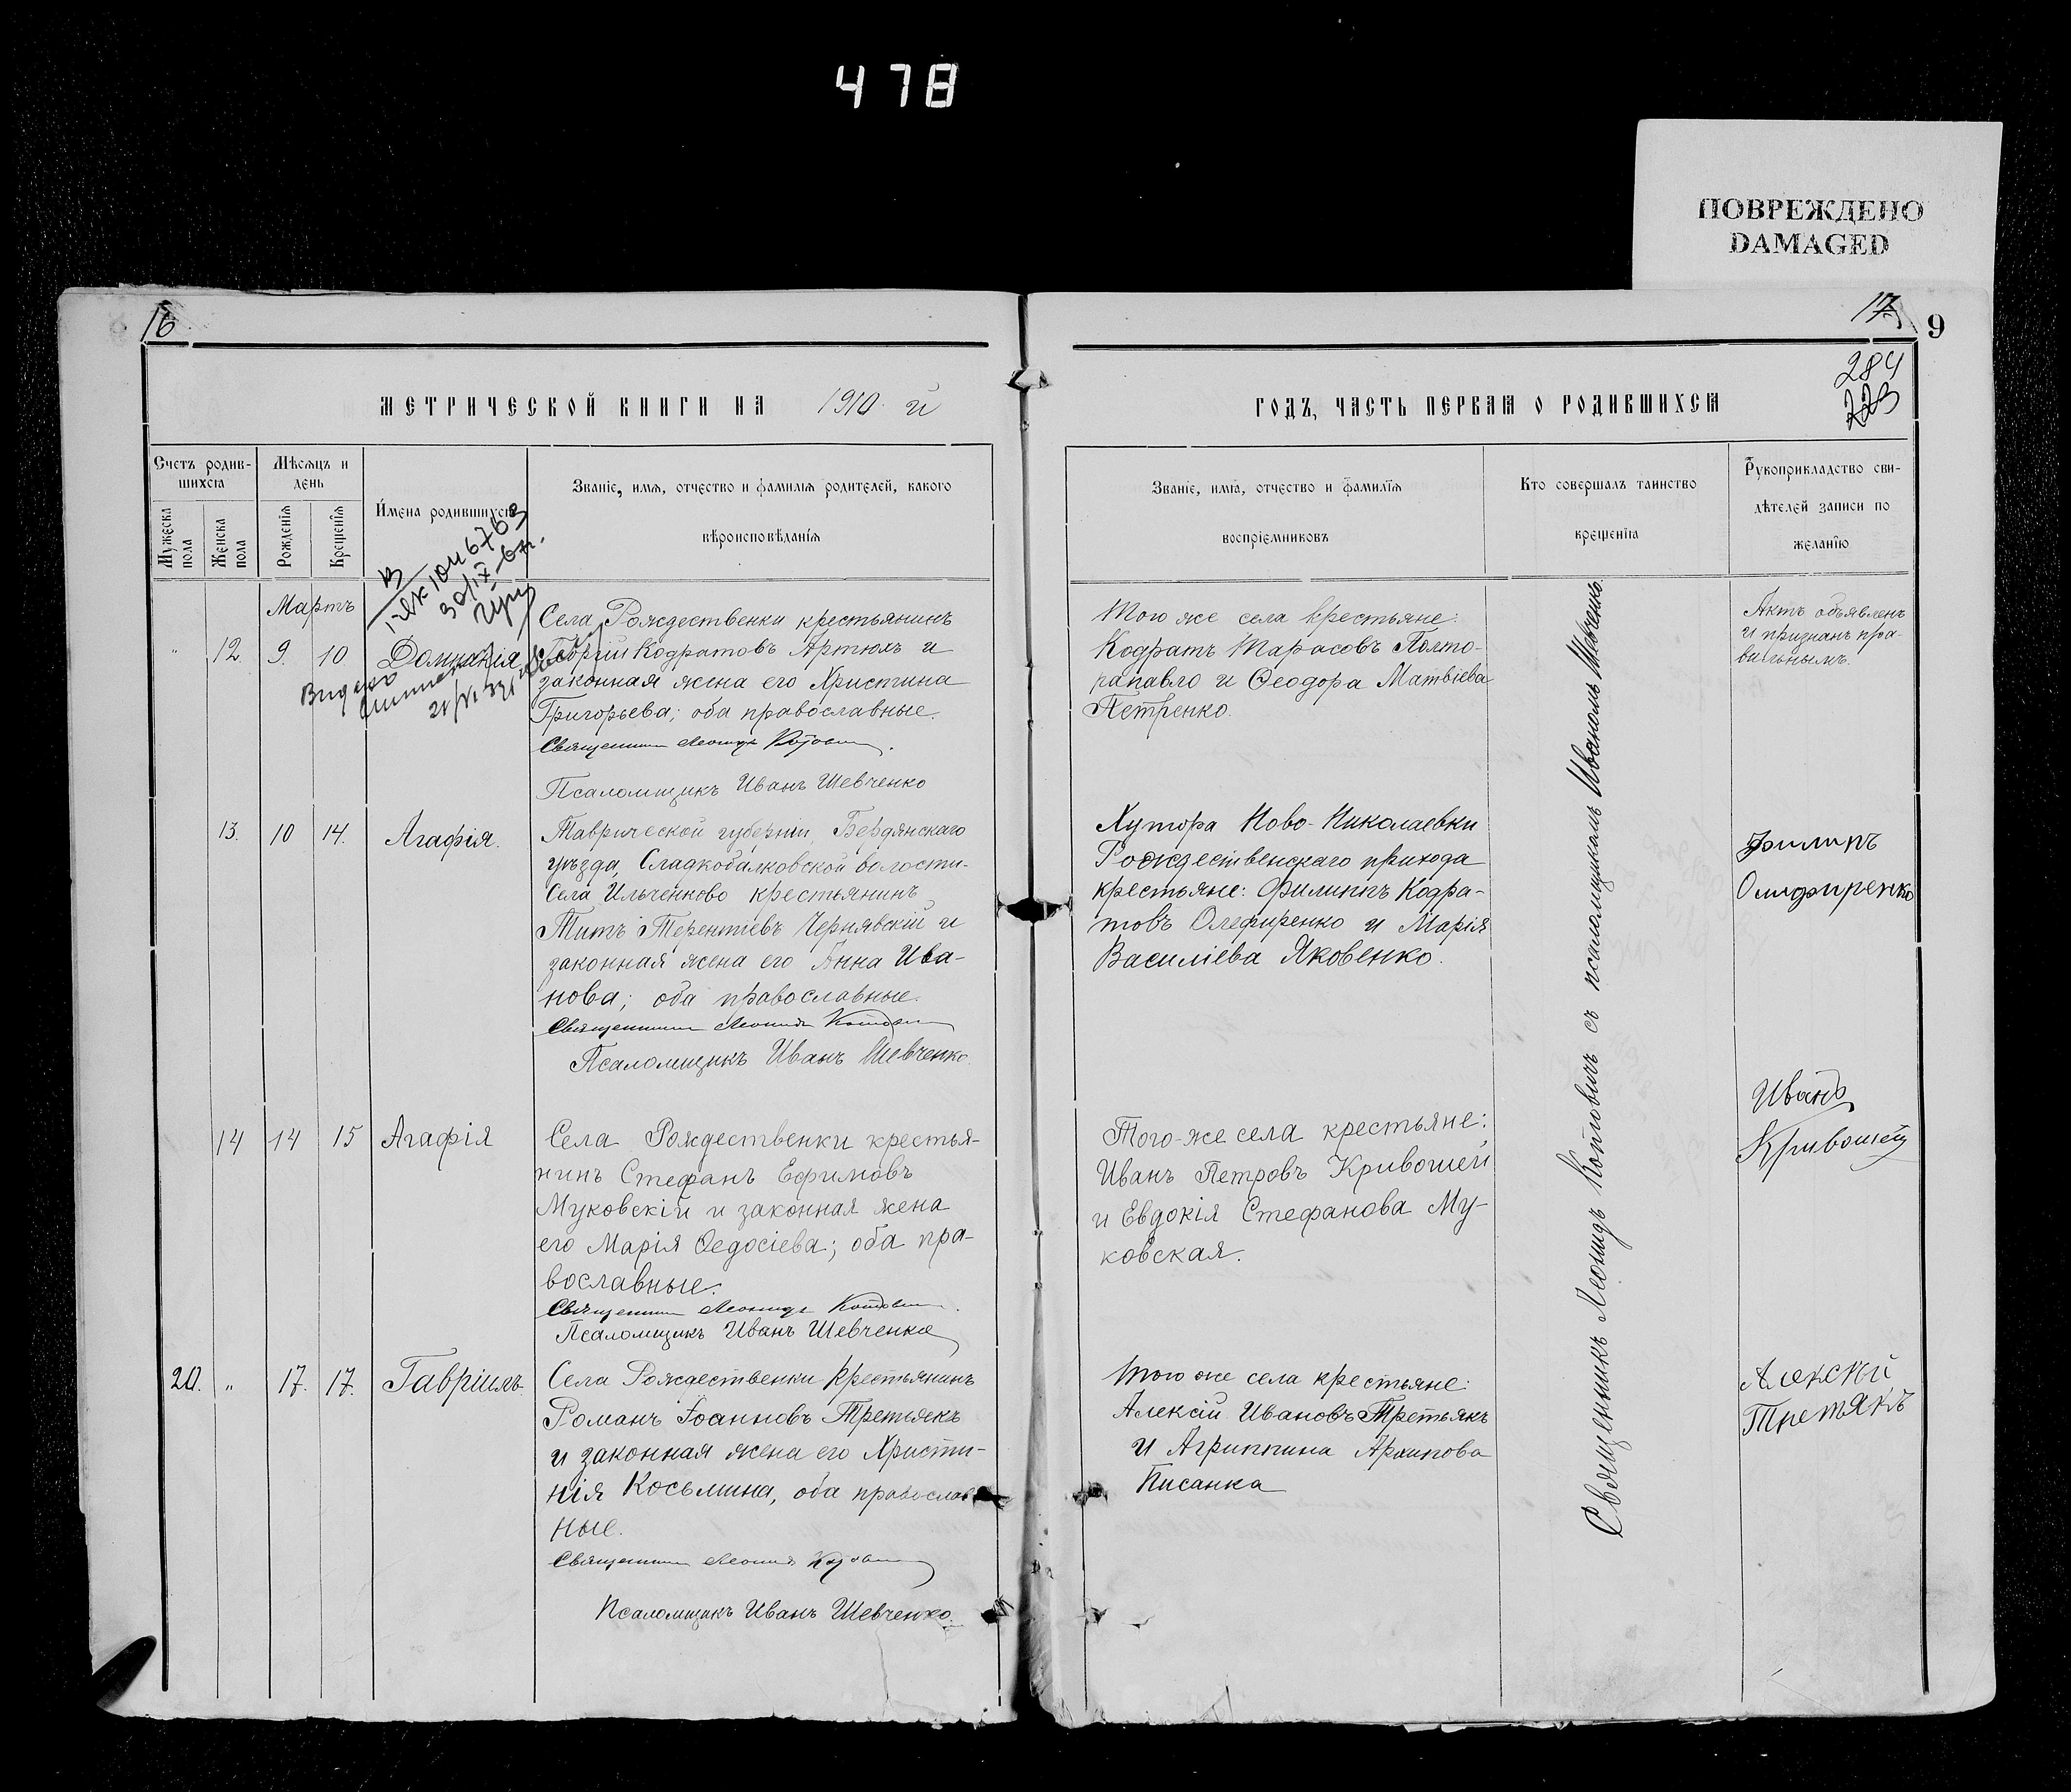 478
ПОВРЕЖДЕНО
DAMAGED
16
17
9
284
223
МЕТРИЧЕСКОЙ КНИГИ НА 1910 й
ГОДЪ, ЧАСТЬ ПЕРВАЯ О РОДИВШИХСЯ
Счетъ родив-
шихся
Мужеска пола
Женска пола
Мѣсяцъ и
день
Рожденія
Крещенія
Имена родившихся
Званіе, имя, отчество и фамилія родителей, какого
вѣроисповѣданія
Званіе, имя, отчество и фамилія
воспріемниковъ
Кто совершалъ таинство
крещенія
Рукоприкладство сви-
дѣтелей записи по
желанію
Мартъ
12. 9. 10
Села Рождественки крестьянинъ
Кодратовъ Артюхъ и
законная жена его Христина
Григорьева; оба православные.
Священникъ Леонидъ Котовичъ
Псаломщикъ Иванъ Шевченко
Того же села крестьяне:
Кодратъ Тарасовъ Полто-
рапавло и Ѳеодора Матвіева
Петренко.
Актъ объявленъ
и признанъ пра-
вильнымъ.
13. 10 14. Агафія.
Таврической губерніи, Бердянскаго
уѣзда, Сладкобалковской волости-
Села Ильченково крестьянинъ
Титъ Терентіевъ Чернявскій и
законная жена его Анна Ива-
нова; оба православные.
Священникъ Леонидъ Котовичъ
Псаломщикъ Иванъ Шевченко.
Хутора Ново-Николаевки
Рождественскаго прихода
крестьяне: Филиппъ Кодра-
товъ Олефиренко и Марія
Василіева Яковенко.
Филипъ
Олифиренко
14 14 15 Агафія
Села Рождественки крестья-
нинъ Стефанъ Ефимовъ
Муковскій и законная жена
его Марія Ѳедосіева; оба пра-
вославные.
Священникъ Леонидъ Котовичъ.
Псаломщикъ Иванъ Шевченко
Того-же села крестьяне:
Иванъ Петровъ Кривошей
и Евдокія Стефанова Му-
ковская.
Иванъ
Кривошей
20. " 17. 17. Гавріилъ.
Села Рождественки крестьянинъ
Романъ Іоанновъ Третьякъ
и законная жена его Христи-
нія Косьмина, оба православ
ные.
Священникъ Леонидъ Котовичъ
Псаломщикъ Иванъ Шевченко.
Того же села крестьяне:
Алексій Ивановъ Третьякъ
и Агриппина Архипова
Писанка
Алексій
Третякъ
Священникъ Леонидъ Котовичъ съ псаломщикомъ Иваномъ Шевченко